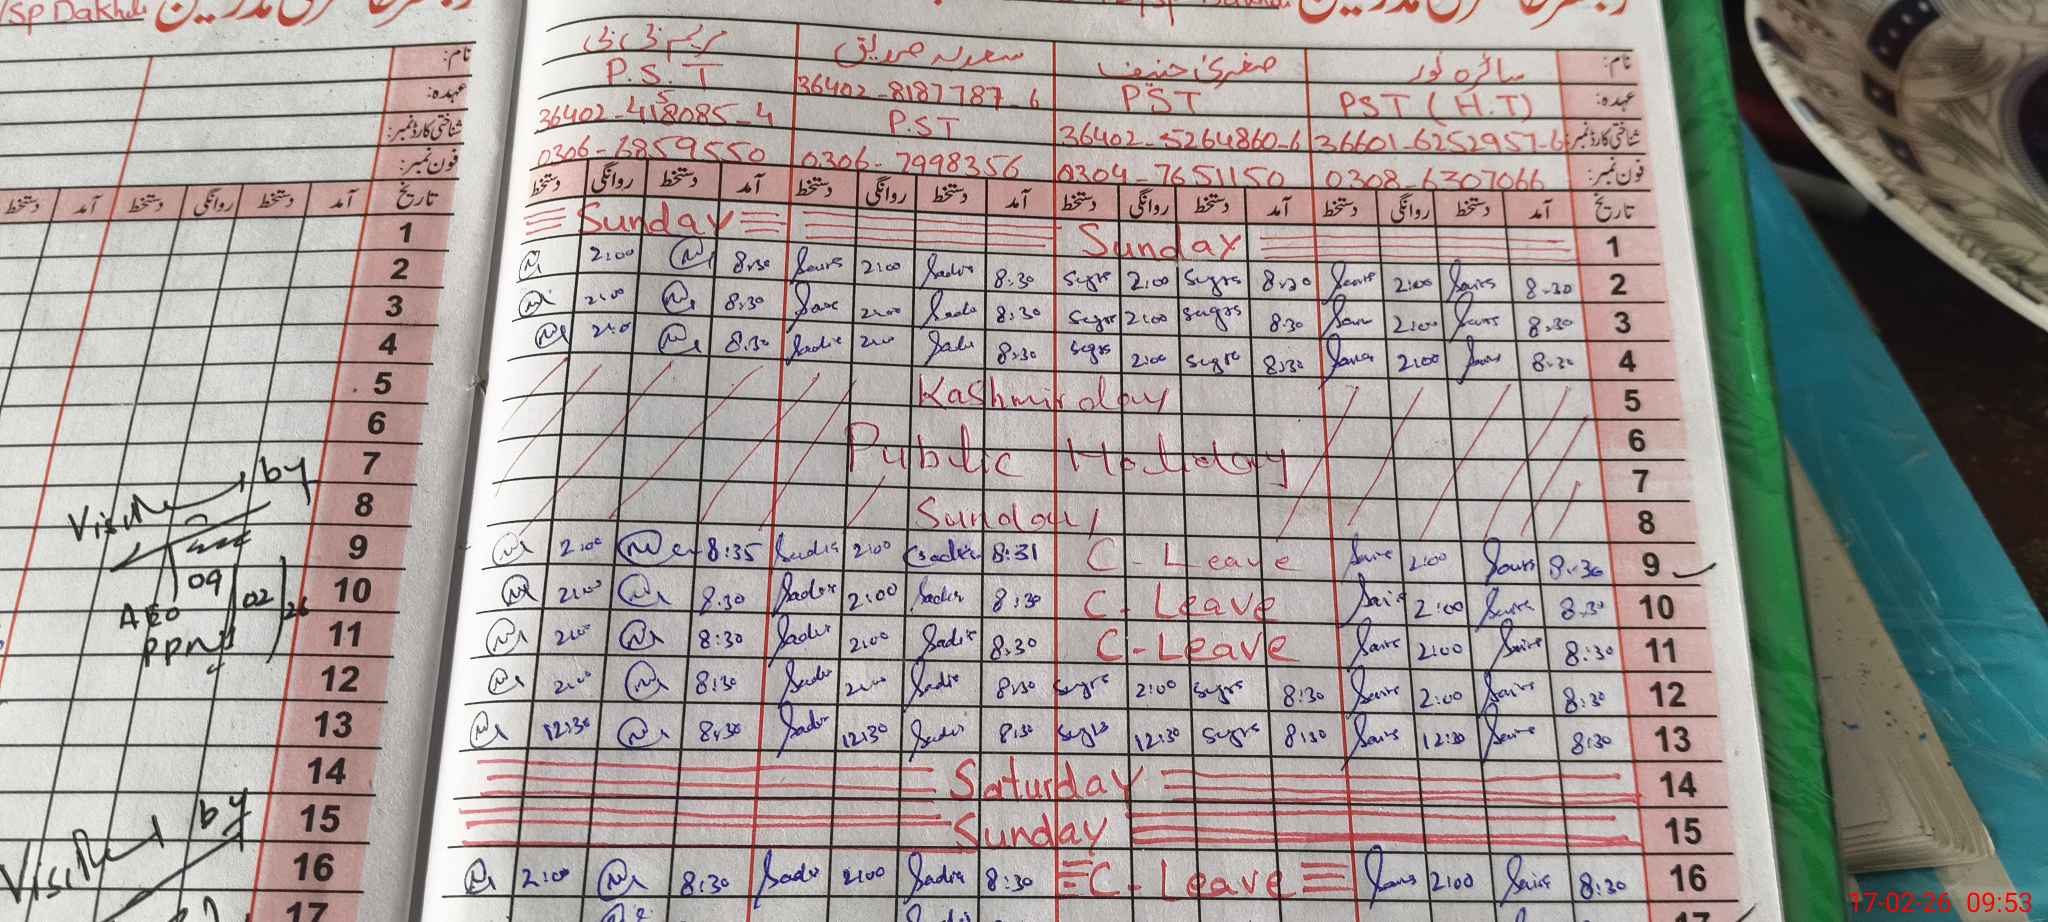 /SP Dakhli
رجسٹر حاضری مدرسین
نام:
عہدہ:
شناختی کارڈ نمبر:
فون نمبر:
تاریخ آمد دستخط روانگی دستخط آمد دستخط
1
2
3
4
5
6
7
8
9
10
11
12
13
14
15
16
17
Visited by
09/02/26
AEO
Visited by
نام: سائرہ نور صغریٰ حنیف سعدیہ صدیق مریم بی بی
عہدہ: PST (H.T) PST 36402-8187787-6 P.S.T
شناختی کارڈ نمبر: 36601-6252957-6 36402-5264860-6 P.ST 36402-4 8085-4
فون نمبر: 0308-6307066 0304-7651150 0306-7998356 0306-7859550
تاریخ آمد دستخط روانگی دستخط آمد دستخط روانگی دستخط آمد دستخط روانگی دستخط آمد دستخط روانگی دستخط
Sunday Sunday 1
2:00 8:30 2:00 Sadia 8:30 Sugra 2:00 Sugra 8:30 Saira 2:00 Saira 8:30 2
2:00 8:30 2:00 Sadia 8:30 Sugra 2:00 Sugra 8:30 Saira 2:00 Saira 8:30 3
2:00 8:30 Sadia 2:00 Sadia 8:30 Sugra 2:00 Sugra 8:30 Saira 2:00 Saira 8:30 4
Kashmir day 5
Public Holiday 6
7
Sunday 8
2:00 8:35 Sadia 2:00 Sadia 8:31 C-Leave Saira 2:00 Saira 8:30 9
2:00 8:30 Sadia 2:00 Sadia 8:30 C-Leave Saira 2:00 Saira 8:30 10
2:00 8:30 Sadia 2:00 Sadia 8:30 C-Leave Saira 2:00 Saira 8:30 11
2:00 8:30 Sadia 2:00 Sadia 8:30 Sugra 2:00 Sugra 8:30 Saira 2:00 Saira 8:30 12
12:30 8:30 Sadia 12:30 Sadia 8:30 Sugra 12:30 Sugra 8:30 Saira 12:30 Saira 8:30 13
Saturday 14
Sunday 15
2:00 8:30 Sadia 2:00 Sadia 8:30 C-Leave Saira 2:00 Saira 8:30 16
17
17-02-26 09:53